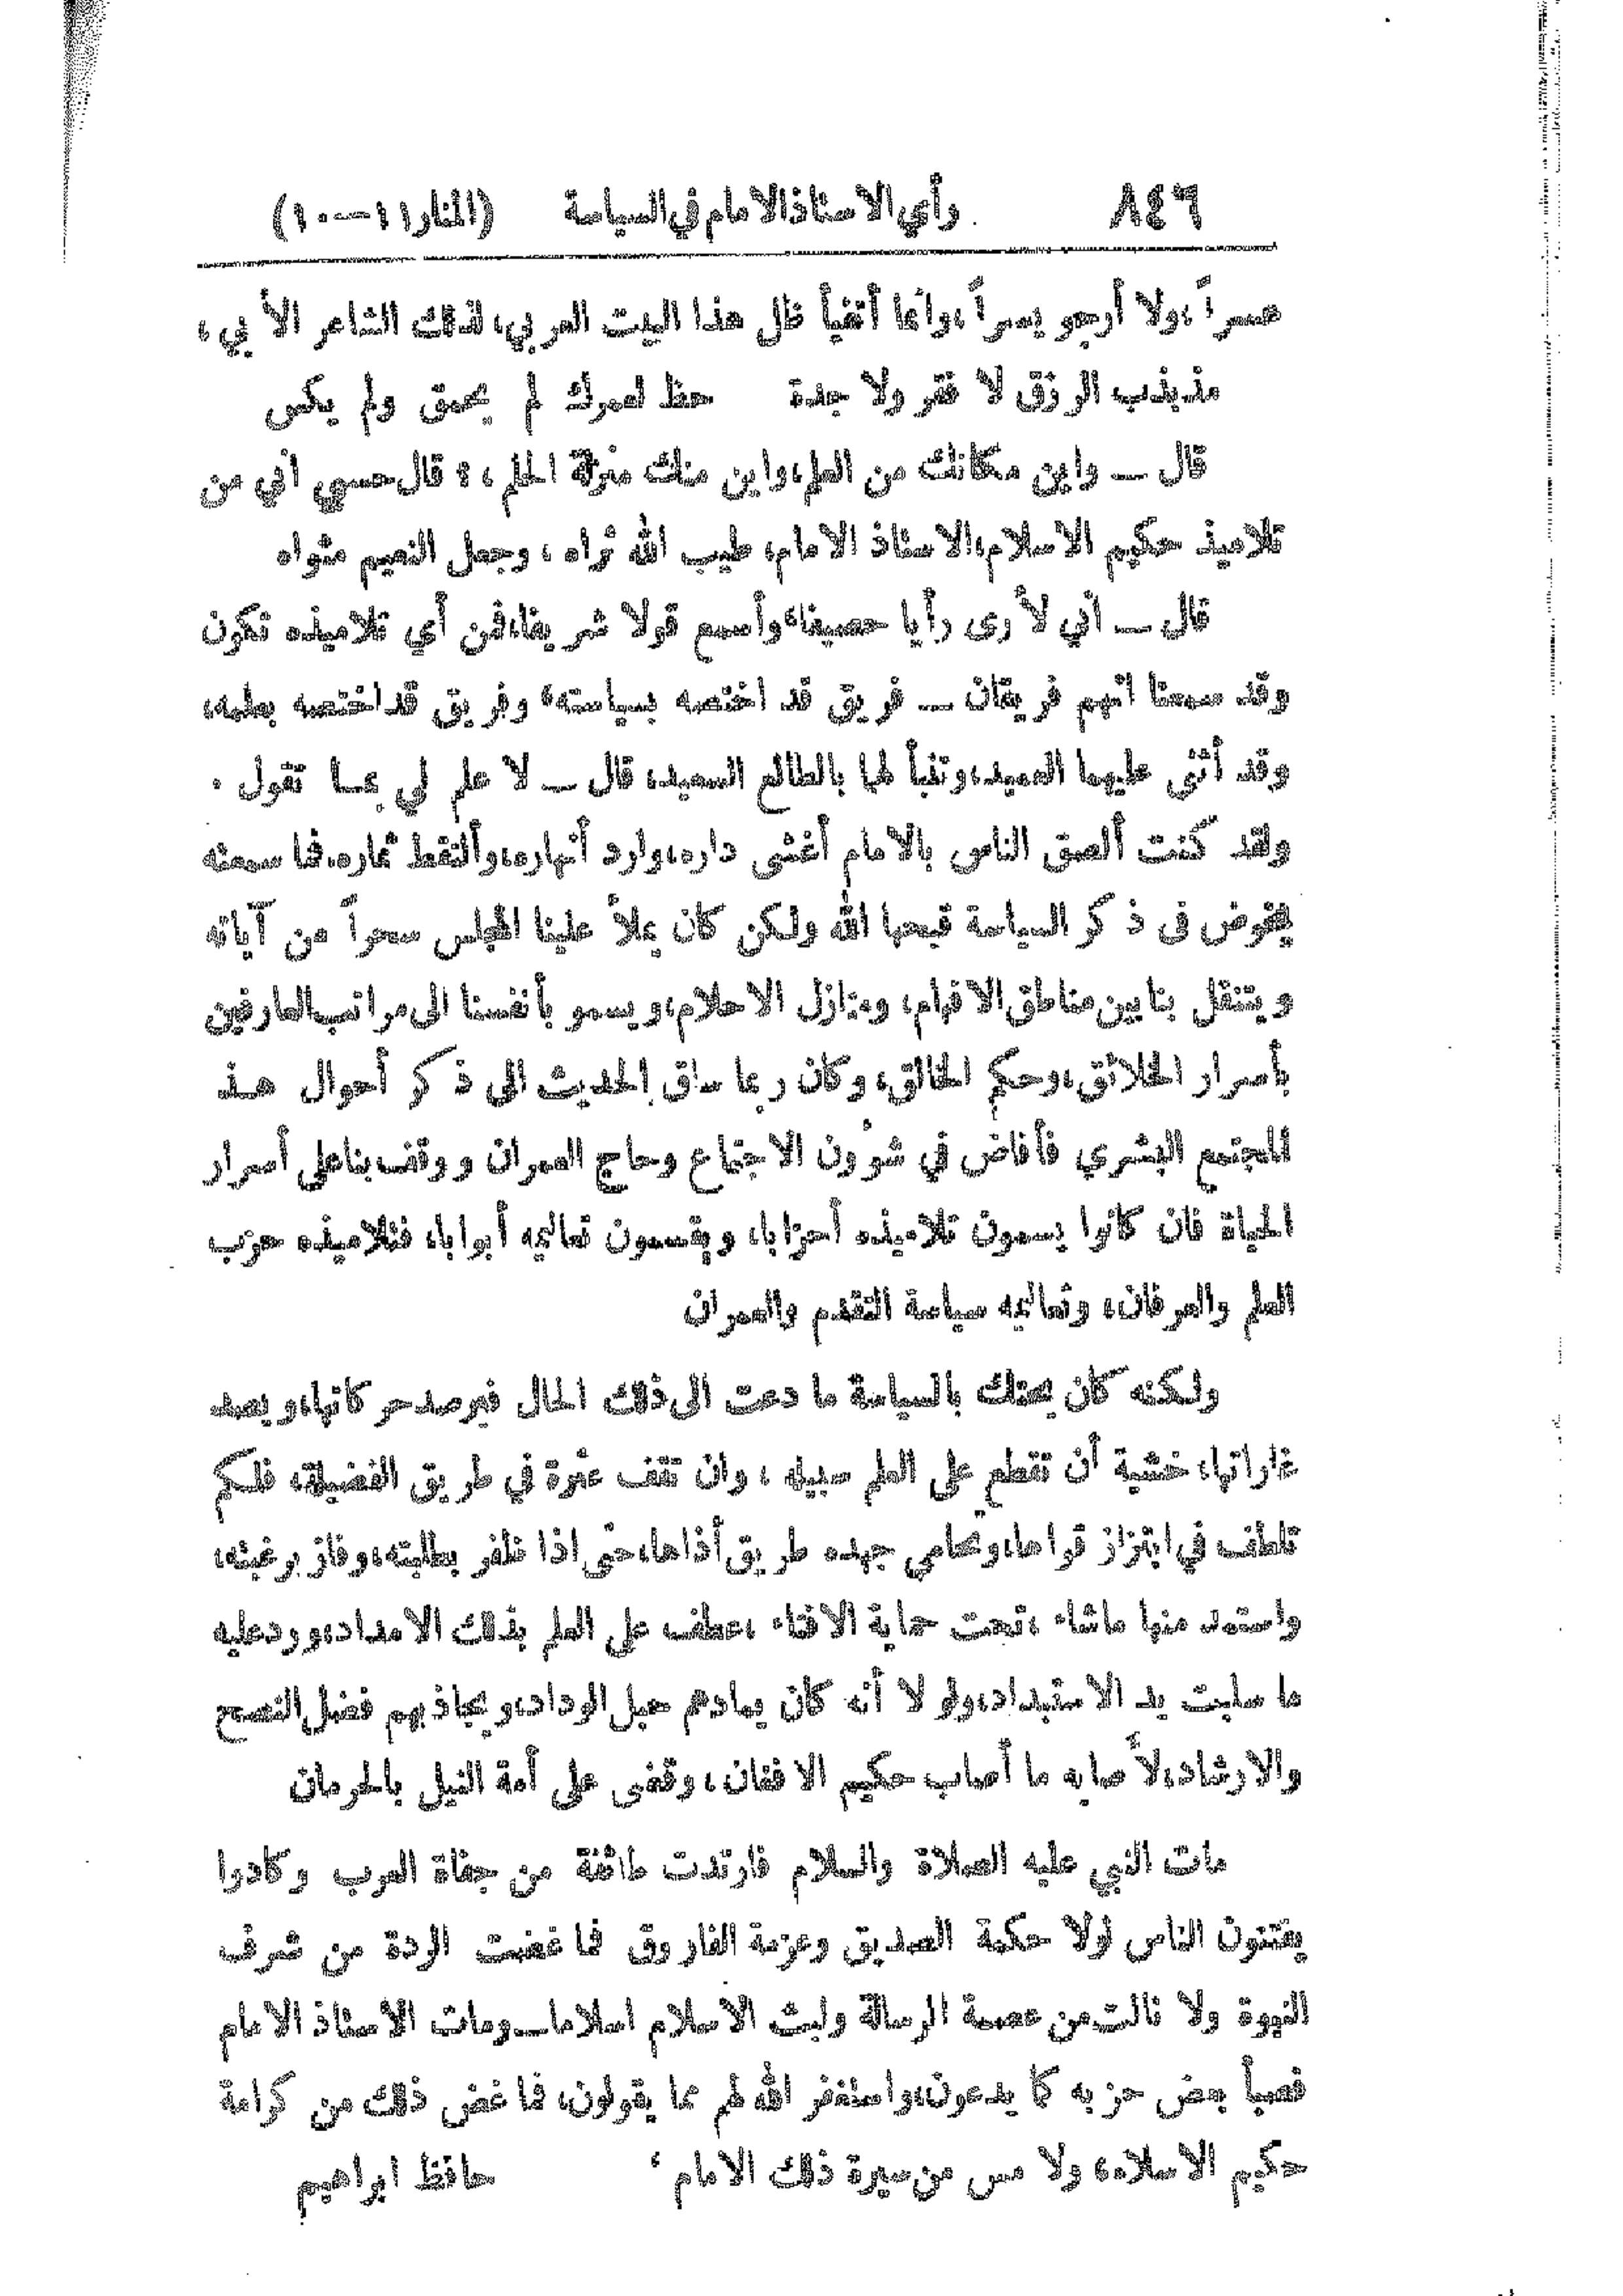 ٨٤٦ رأي الاستاذ الامام في السياسة (المنار ١١ــ١٠)
عسراً ،ولا أرجو يسراً ،وانما أتفيأ ظل هذا البيت العربي، لذلك الشاعر الأبي ،
مذبذب الرزق لا فقر ولا جدة حظ لعمرك لم يحمق ولم يكس
قال ــ واين مكانك من العلم، واين منك منزلة الحلم ، ؟ قال حسبي اني من
تلاميذ حكيم الاسلام، الاستاذ الامام، طيب الله ثراه ، وجعل النعيم مثواه
قال ــ اني لأرى رأيا حصيفا، وأسمع قولا شريفا، فمن أي تلاميذه تكون
وقد سمعنا انهم فريقان ــ فريق قد اختصه بسياسته، وفريق قد اختصه بعلمه،
وقد أثنى عليهما العميد، وتنبأ لهما بالطالع السعيد، قال ــ لا علم لي بما تقول .
ولقد كنت ألصق الناس بالامام أغشى داره، وارد أنهاره، وألتقط ثماره، فما سمعته
يخوض في ذكر السياسة قبحها الله ولكن كان يملأ علينا المجلس سحراً من آياته
وينتقل بنا بين مناطق الافهام، ومنازل الاحلام، ويسمو بأنفسنا الى مراتب العارفين
بأسرار الخلائق، وحكم الخالق، وكان ربما ساق الحديث الى ذكر أحوال هذ
المجتمع البشري فأفاض في شؤون الاجتماع وحاج العمران ووقف بنا على أسرار
الحياة فان كانوا يسمون تلاميذه أحزابا، ويقسمون تعاليمه أبوابا، فتلاميذه حزب
العلم والعرفان، وتعاليمه سياسة التقدم والعمران
ولكنه كان يحتك بالسياسة ما دعت الى ذلك الحال فيرصد حركاتها، ويصد
غاراتها، خشية أن تقطع على العلم سبيله ، وان تقف عثرة في طريق الفضيلة، فلكم
تلطف في ابتزاز قواها، وتحامى جهده طريق أذاها، حتى اذا ظفر بطلبته، وفاز برغبته،
واستمد منها ماشاء ،تحت حماية الافتاء ،عطف على العلم بذلك الامداد، ورد عليه
ما سلبت يد الاستبداد، ولو لا أنه كان يمادهم حبل الوداد، ويجاذبهم فضل النصح
والارشاد، لأصابه ما أصاب حكيم الافغان ، وقضى على أمة النيل بالحرمان
مات النبي عليه الصلاة والسلام فارتدت طائفة من جفاة العرب وكادوا
يفتنون الناس لولا حكمة الصديق وعزمة الفاروق فما غضت الردة من شرف
النبوة ولا نالت من عصمة الرسالة ولبث الاسلام اسلاما ــ ومات الاستاذ الامام
فصبأ بعض حزبه كما يدعون، واستغفر الله لهم مما يقولون، فما غض ذلك من كرامة
حكيم الاسلام، ولا مس من سيرة ذلك الامام ، حافظ ابراهيم